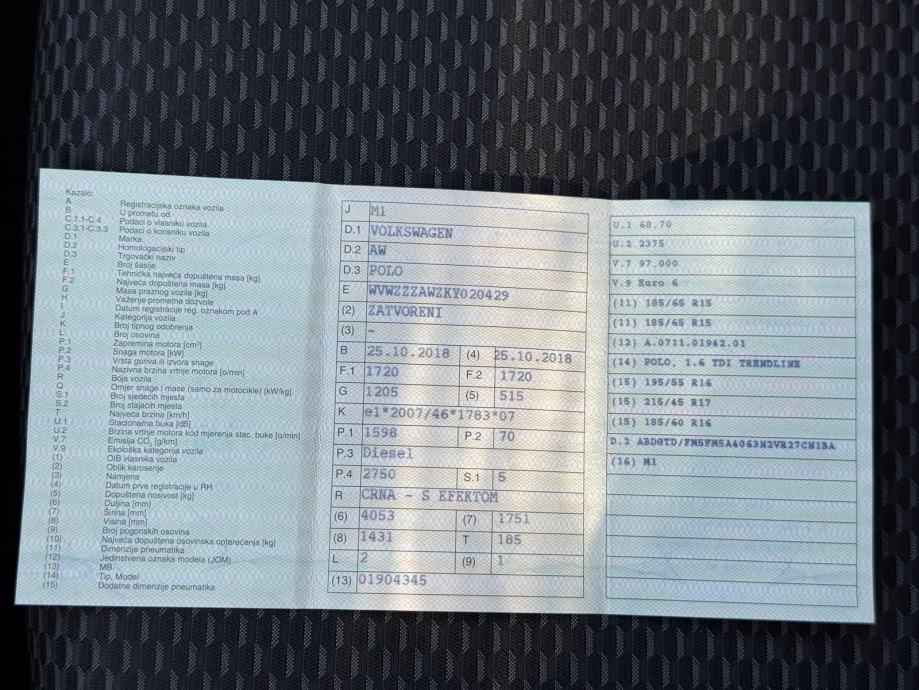 Kazalo:
A Registracijska oznaka vozila
B U prometu od
C.1.1-C.4 Podaci o vlasniku vozila
C.3.1-C.3.3 Podaci o korisniku vozila
D.1 Marka
D.2 Homologacijski tip
D.3 Trgovački naziv
E Broj šasije
F.1 Tehnička najveća dopuštena masa [kg]
F.2 Najveća dopuštena masa [kg]
G Masa praznog vozila [kg]
H Važenje prometne dozvole
I Datum registracije reg. oznakom pod A
J Kategorija vozila
K Broj tipnog odobrenja
L Broj osovina
P.1 Zapremina motora [cm³]
P.2 Snaga motora [kW]
P.3 Vrsta goriva ili izvora snage
P.4 Nazivna brzina vrtnje motora [o/min]
R Boja vozila
Q Omjer snage i mase (samo za motocikle) [kW/kg]
S.1 Broj sjedećih mjesta
S.2 Broj stajaćih mjesta
T Najveća brzina [km/h]
U.1 Stacionarna buka [dB]
U.2 Brzina vrtnje motora kod mjerenja stac. buke [o/min]
V.7 Emisija CO₂ [g/km]
V.9 Ekološka kategorija vozila
(1) OIB vlasnika vozila
(2) Oblik karoserije
(3) Namjena
(4) Datum prve registracije u RH
(5) Dopuštena nosivost [kg]
(6) Duljina [mm]
(7) Širina [mm]
(8) Visina [mm]
(9) Broj pogonskih osovina
(10) Najveća dopuštena osovinska opterećenja [kg]
(11) Dimenzije pneumatika
(12) Jedinstvena oznaka modela (JOM)
(13) MB
(14) Tip, Model
(15) Dodatne dimenzije pneumatika
J M1
D.1 VOLKSWAGEN
D.2 AW
D.3 POLO
E WVWZZZAWZKY020429
(2) ZATVORENI
(3) -
B 25.10.2018 (4) 25.10.2018
F.1 1720 F.2 1720
G 1205 (5) 515
K e1*2007/46*1783*07
P.1 1598 P.2 70
P.3 Diesel
P.4 2750 S.1 5
R CRNA - S EFEKTOM
(6) 4053 (7) 1751
(8) 1431 T 185
L 2 (9) 1
(13) 01904345
U.1 68,70
U.2 2375
V.7 97,000
V.9 Euro 6
(11) 185/65 R15
(11) 185/65 R15
(12) A.0711.01942.01
(14) POLO, 1.6 TDI TRENDLINE
(15) 195/55 R16
(15) 215/45 R17
(15) 185/60 R16
D.2 ABDGTD/FM5FM5A4063N2VR27CN1BA
(16) M1